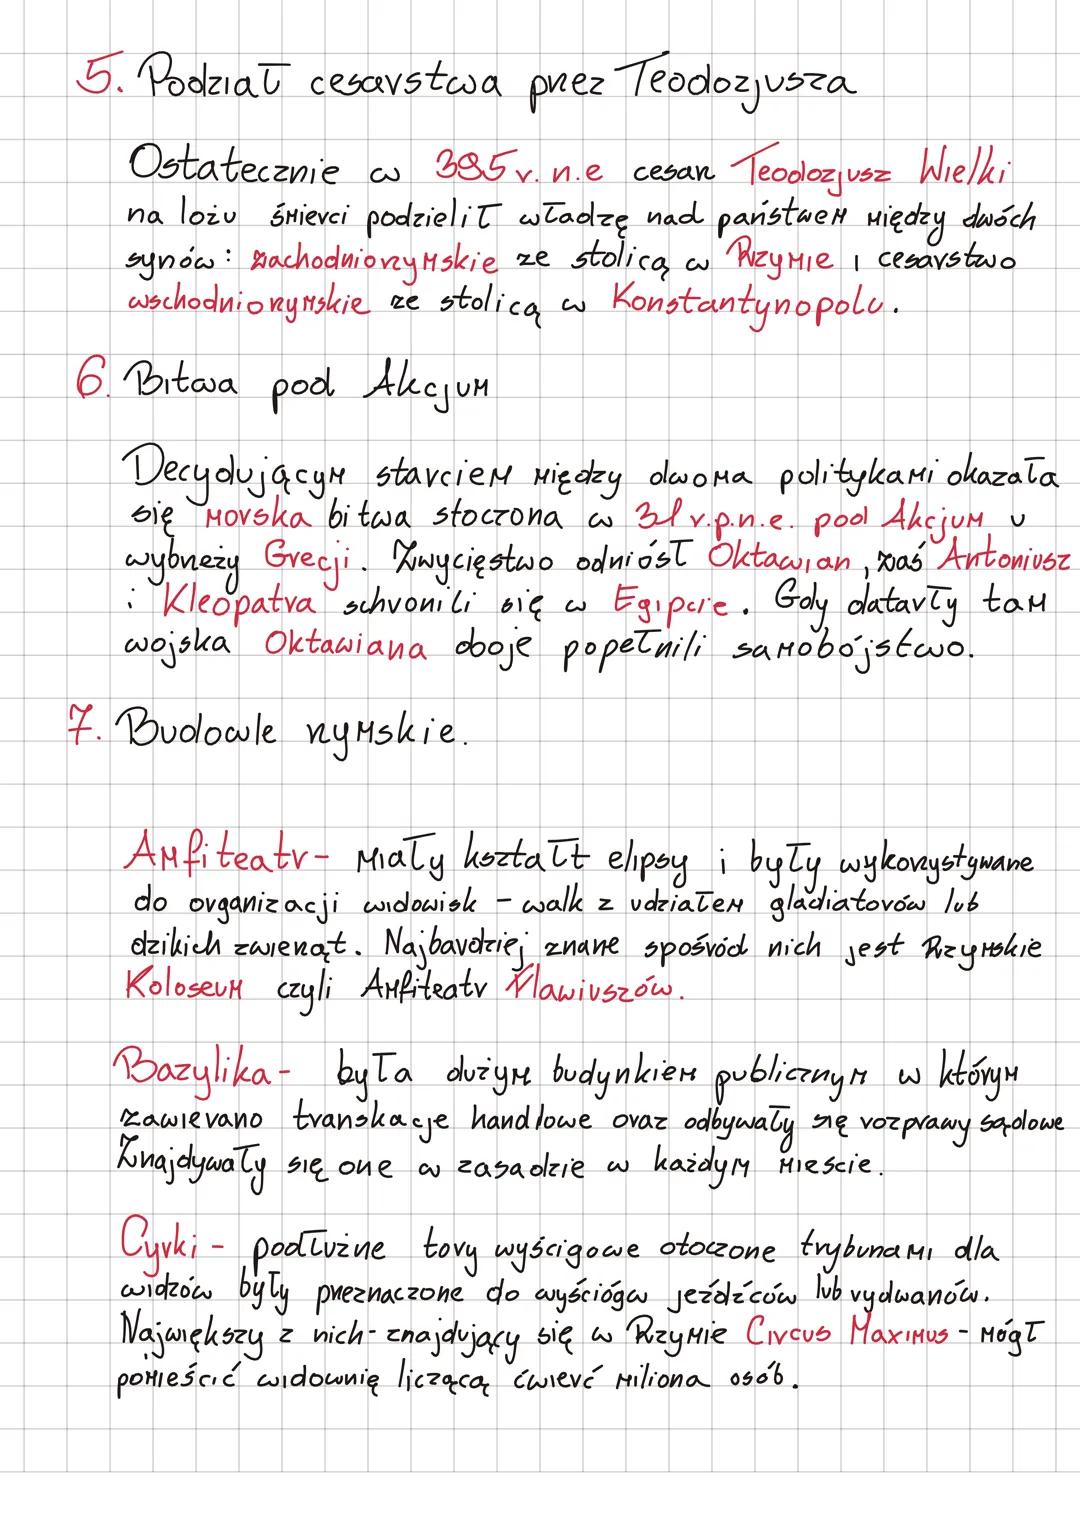 5. Podział cesarstwa przez Teodozjusza
Ostatecznie w 395 r. n.e cesarz Teodozjusz Wielki
na łożu śmierci podzielił władzę nad państwem między dwóch
synów: zachodniorzymskie ze stolicą w Rzymie i cesarstwo
wschodniorzymskie ze stolicą w Konstantynopolu.
6. Bitwa pod Akcjum
Decydującym starciem między dwoma politykami okazała
się morska bitwa stoczona w 31 r.p.n.e. pod Akcjum u
wybrzeży Grecji. Zwycięstwo odniósł Oktawian, zaś Antoniusz
i Kleopatra schronili się w Egipcie. Gdy datarły tam
wojska Oktawiana oboje popełnili samobójstwo.
7. Budowle rzymskie.
Amfiteatr- miały kształt elipsy i były wykorzystywane
do organizacji widowisk - walk z udziałem gladiatorów lub
dzikich zwierząt. Najbardziej znane spośród nich jest Rzymskie
Koloseum czyli Amfiteatr Flawiuszów.
Bazylika- była dużym budynkiem publicznym w którym
zawierano transkacje handlowe oraz odbywały się rozprawy sądowe
Znajdywały się one w zasadzie w każdym mieście.
Cyrki - podłużne tory wyścigowe otoczone trybunami dla
widzów były przeznaczone do wyściógw jeźdźców lub rydwanów.
Największy z nich-znajdujący się w Rzymie Circus Maximus - mógł
pomieścić widownię liczącą ćwierć miliona osób.